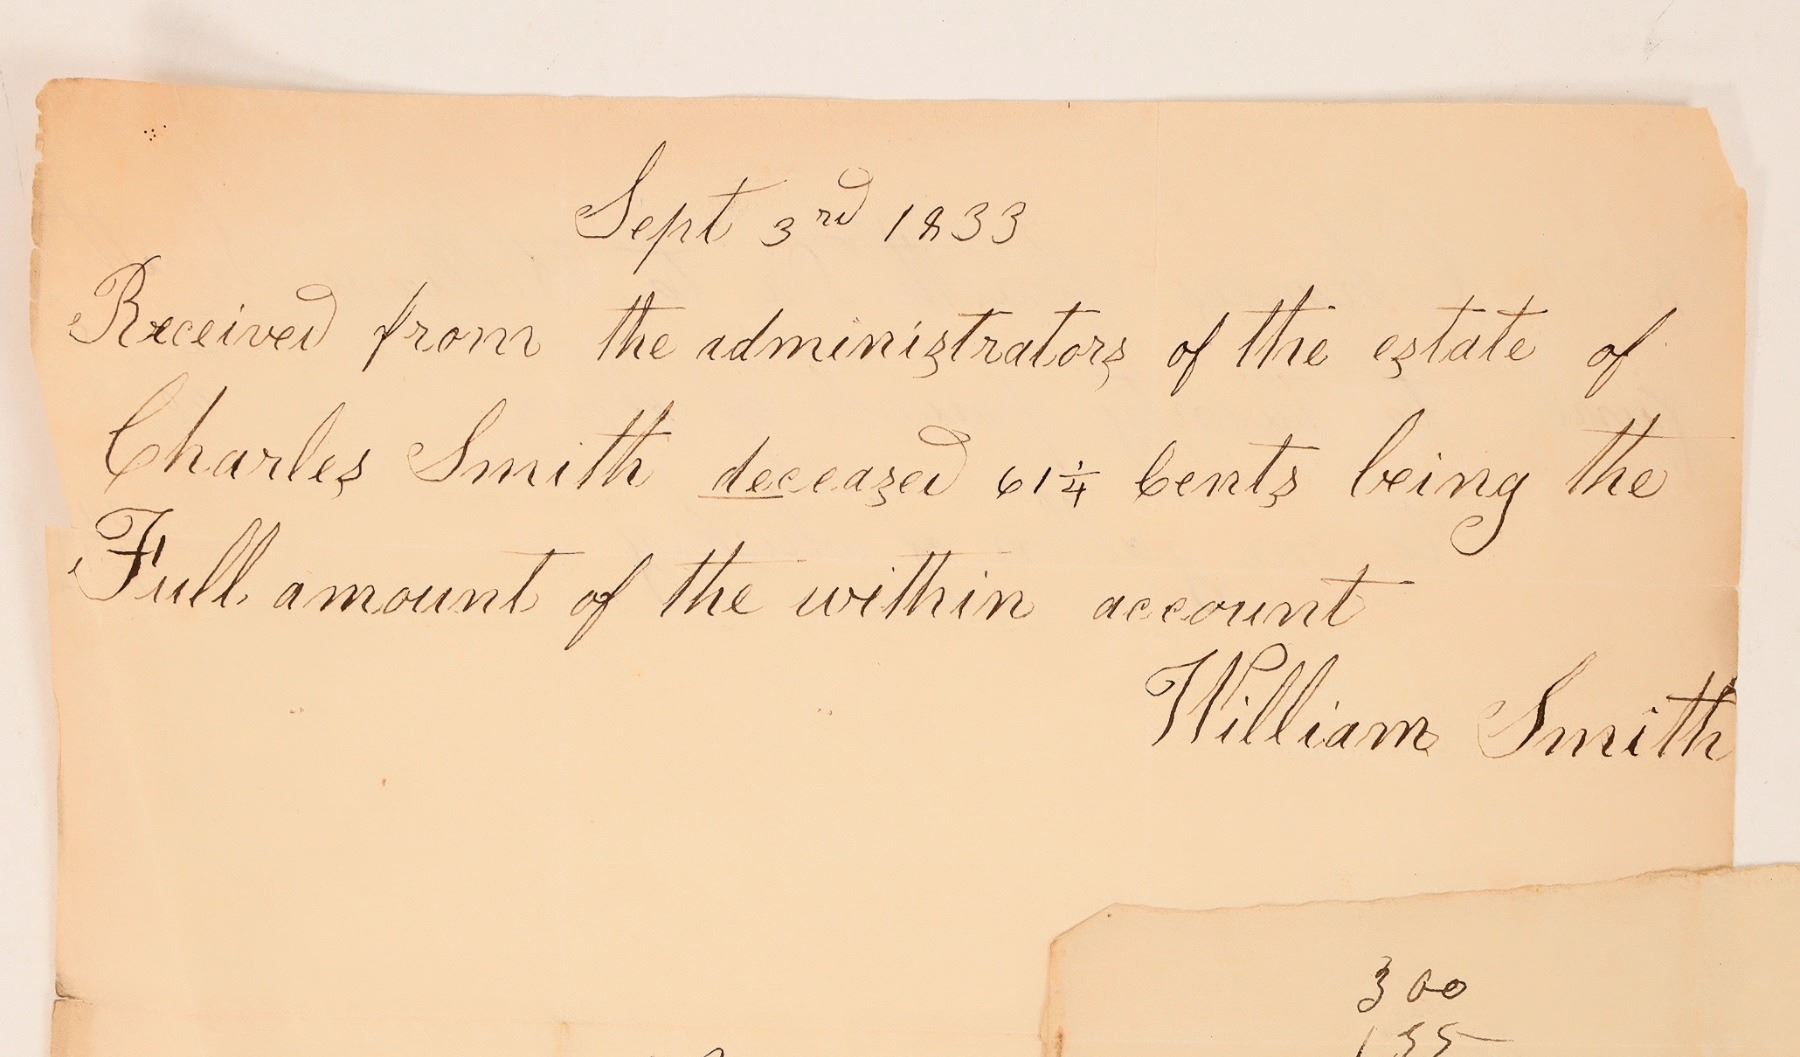 Sept 3rd 1833
Received from the administrators of the estate of
Charles Smith deceased 61 1/4 Cents being the
Full amount of the within account
William Smith
3 00
1 55